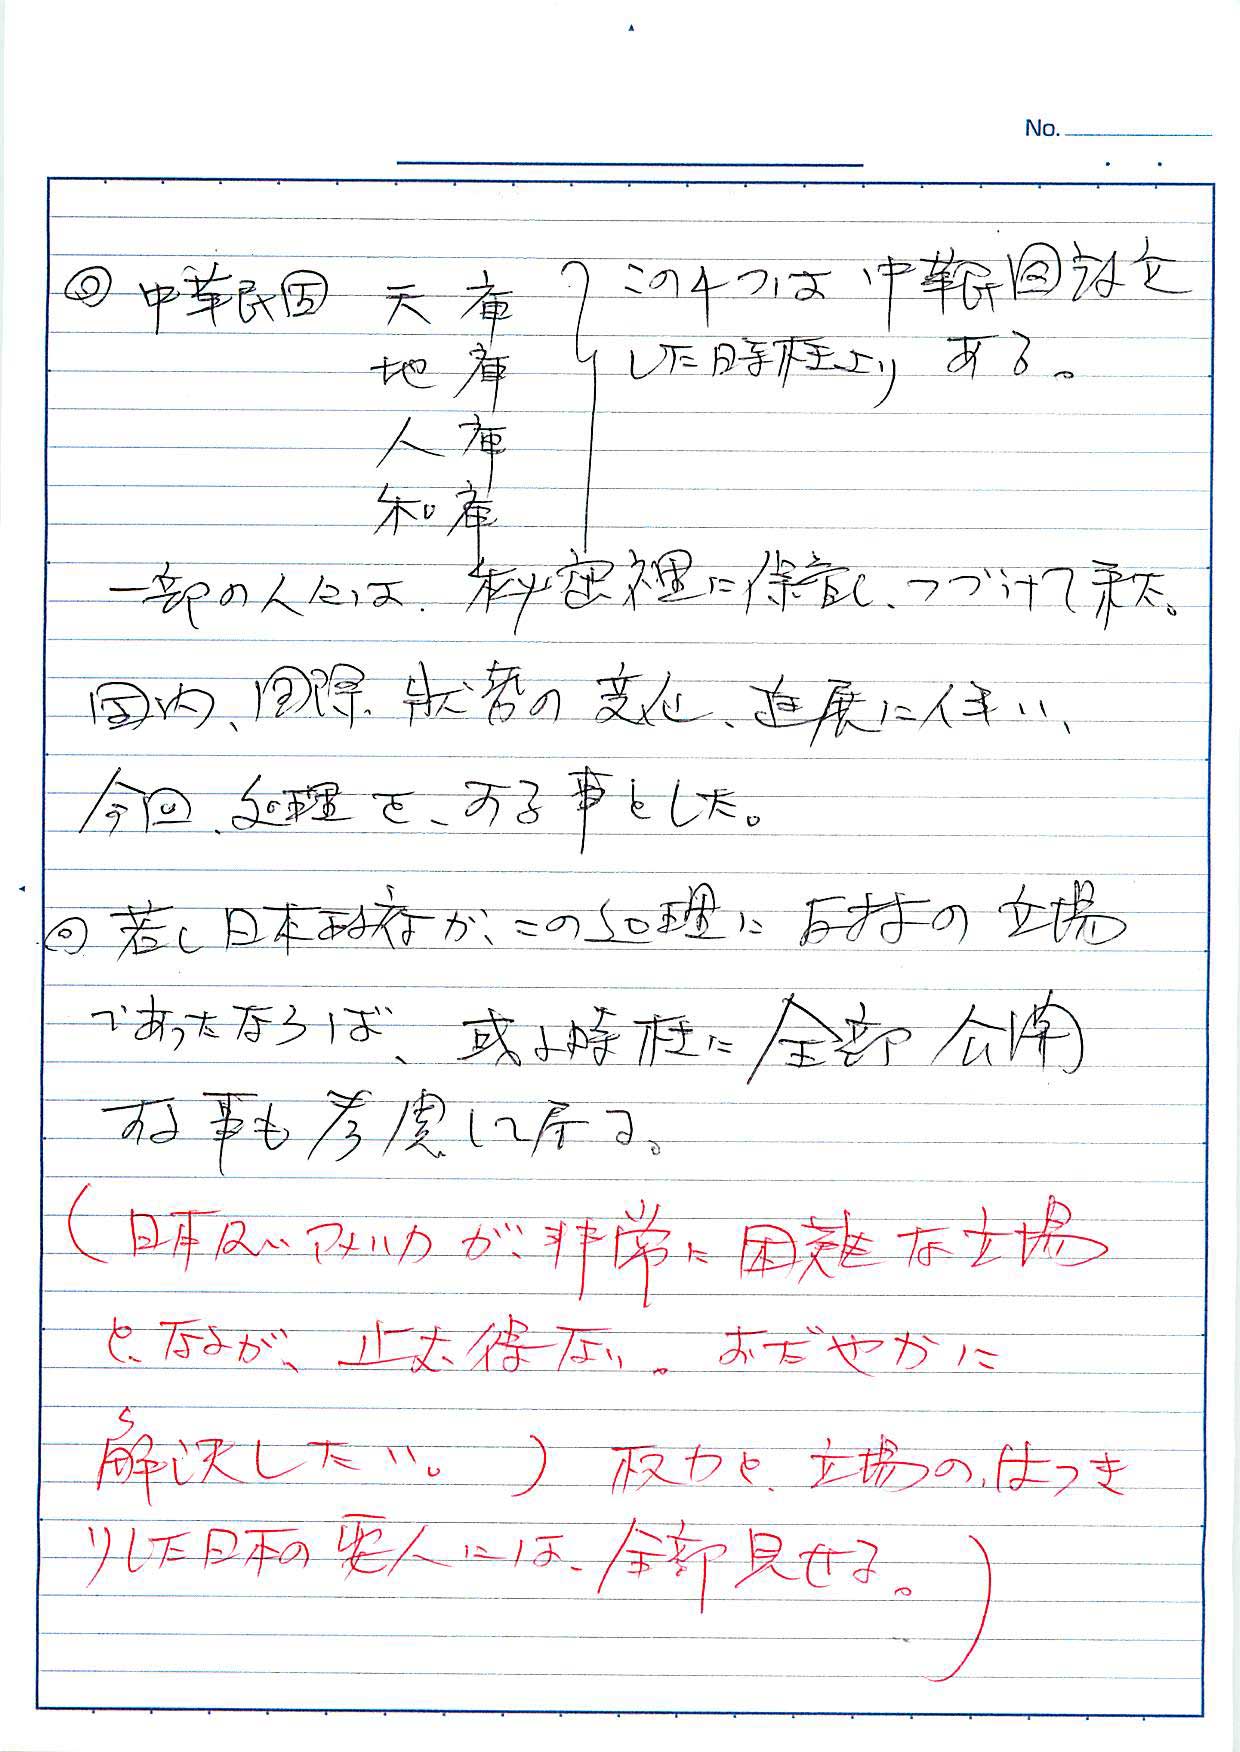 No.
◎ 中華民国 天庫 この4つは中華民国設立
地庫 した時程より ある。
人庫
和庫
一部の人々は、秘密裡に保管し、つづけて来た。
国内、国際、状態の変化、進展に伴い、
今回、処理を、する事とした。
◎ 若し日本政府が、この処理に反対の立場
であったならば、或る時程に全部公開
する事も考慮して居る。
(日本及びアメリカが、非常に困難な立場
と、なるが、止む得ない。おだやかに
解決したい。) 权力と、立場の、はっき
りした日本の要人には、全部見せる。)